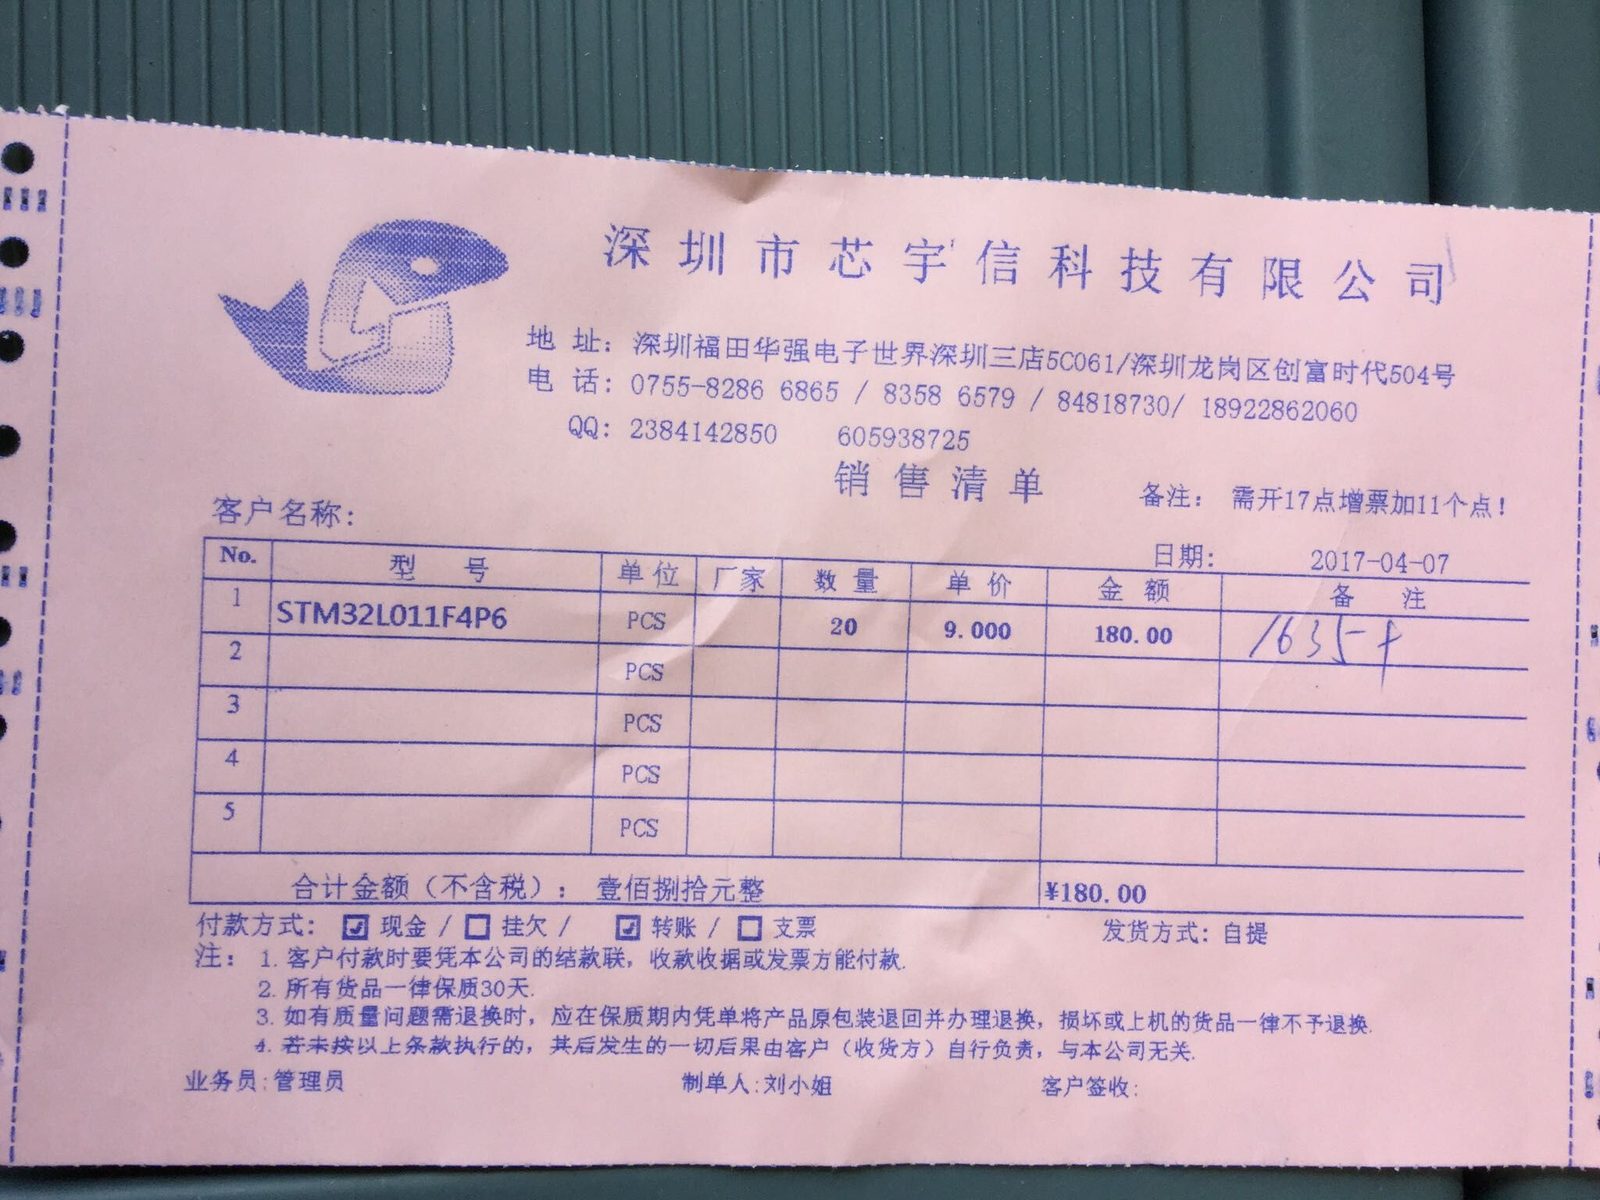 深圳市芯宇信科技有限公司
地 址：深圳福田华强电子世界深圳三店5C061/深圳龙岗区创富时代504号
电 话：0755-8286 6865 / 8358 6579 / 84818730/ 18922862060
QQ：2384142850 605938725
销售清单
备注： 需开17点增票加11个点！
客户名称：
日期： 2017-04-07
No. 型 号 单位 厂家 数量 单价 金额 备 注
1 STM32L011F4P6 PCS 20 9.000 180.00 1635+
2 PCS
3 PCS
4 PCS
5 PCS
合计金额（不含税）： 壹佰捌拾元整 ¥180.00
付款方式：☑现金 / ☐挂欠 / ☑转账 / ☐支票 发货方式：自提
注： 1. 客户付款时要凭本公司的结款联，收款收据或发票方能付款.
2. 所有货品一律保质30天.
3. 如有质量问题需退换时，应在保质期内凭单将产品原包装退回并办理退换，损坏或上机的货品一律不予退换.
4. 若未按以上条款执行的，其后发生的一切后果由客户（收货方）自行负责，与本公司无关.
业务员:管理员 制单人:刘小姐 客户签收: